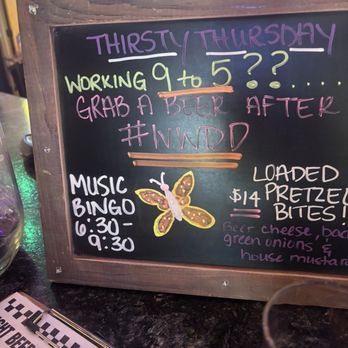 THIRSTY THURSDAY
WORKING 9 to 5??.....
GRAB A BEER AFTER
#WWDD
MUSIC
BINGO
6:30-
9:30
LOADED
$14 PRETZEL
BITES!
Beer cheese,
green onions &
house mustard